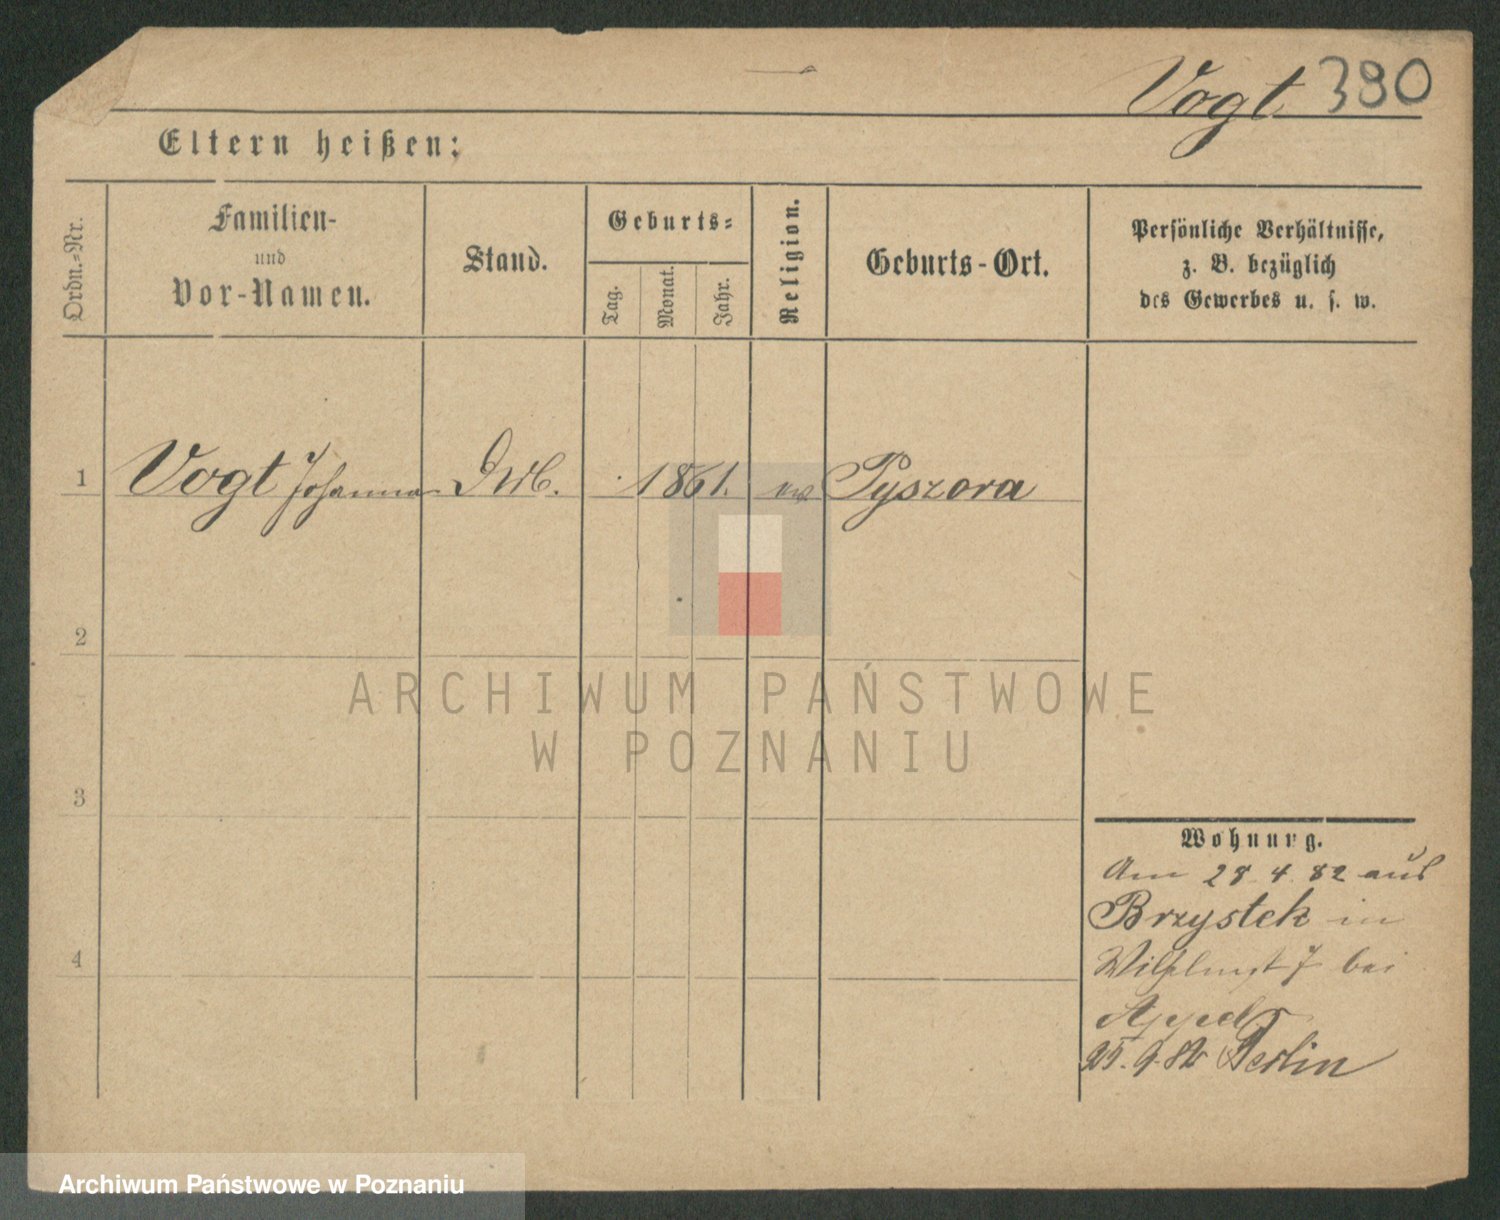 Vogt 390
Eltern heißen:
Ordn.-Nr.
Familien-
und
Vor-Namen.
Stand.
Geburts-
Tag.
Monat.
Jahr.
Religion.
Geburts-Ort.
Persönliche Verhältnisse,
z. B. bezüglich
des Gewerbes u. s. w.
1 Vogt Johanna 1861. ev Pyszora
2
3
4
ARCHIWUM PAŃSTWOWE
W POZNANIU
Wohnung.
Am 28 4 82 aus
Brzystek in
Wilhelmst 7 bei
Appel
9. 82 Berlin
Archiwum Państwowe w Poznaniu